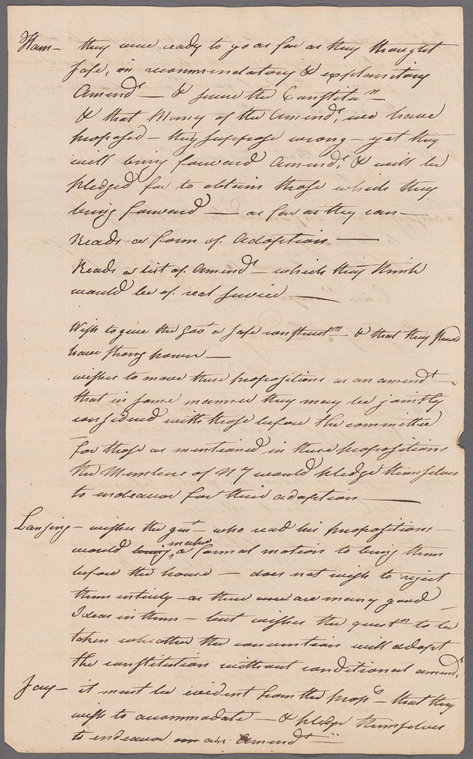 Ham – they were ready to go as far as they thought
safe, in recommendatory & explanitory
Amendts – & secure the Constitun –
& that Many of the Amendts we have
proposed – they suppose wrong – yet they
will bring forward Amendts & will be
pledged for to obtain those which they
bring forward – as far as they can –
Reads a form of Adoption –
Reads a list of Amendts – which they think
would be of real service –
Wish to give the Govt a safe construction – & that they should
have strong power –
wishes to move these propositions as an amendt –
that in some manner they may be jointly
considered with those before the committee
for those as mentioned in these propositions
the Members of NY would pledge themselves
to endeavor for their adoption –
Lansing – wishes the gent – who read his propositions –
would bring make a formal motion to bring them
before the house – does not wish to reject
them entirely – as there were are many good
Ideas in them – but wishes the questn to be
taken whether the convention will adopt
the constitution without conditional amendts
Jay – it must be evident from the props – that they
wish to accommodate – & pledge themselves
to endeavor an Amendt –